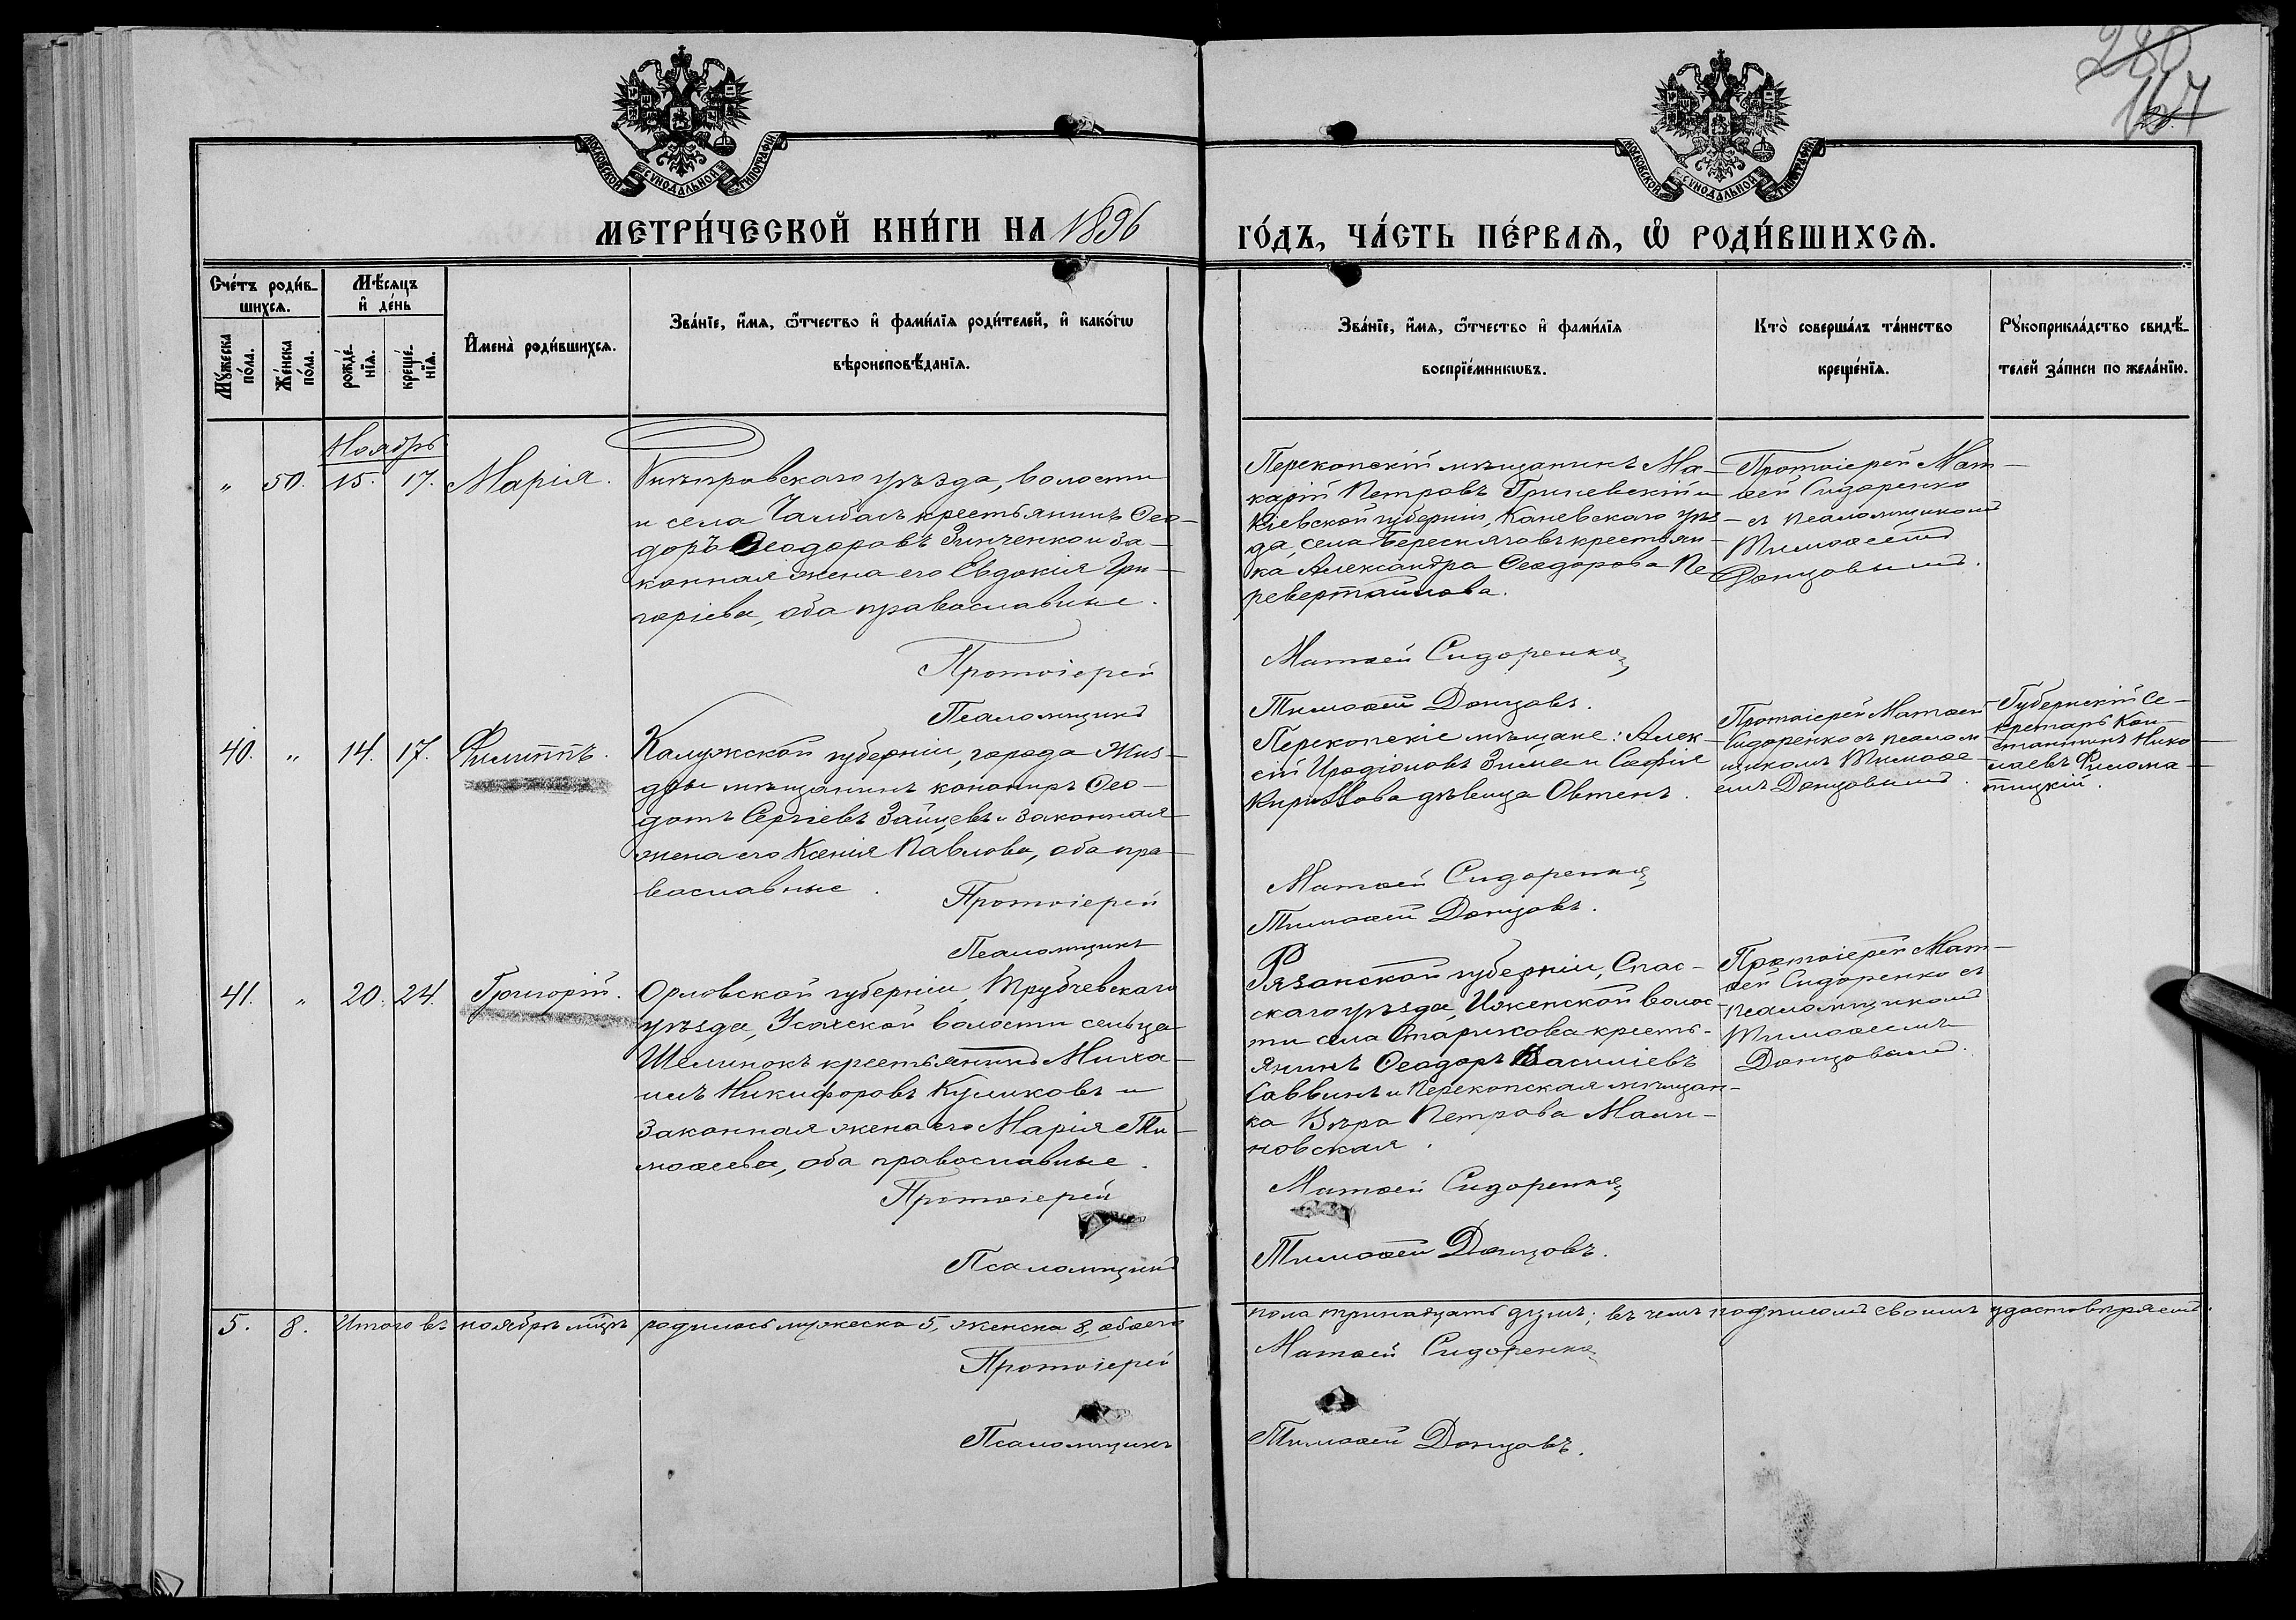 280
167
МОСКОВСКОЙ СѴНОДАЛЬНОЙ ТИПОГРАФІИ
МОСКОВСКОЙ СѴНОДАЛЬНОЙ ТИПОГРАФІИ
МЕТРИ́ЧЕСКОЙ КНИ́ГИ НА 1896 ГО́ДЪ, ЧА́СТЬ ПЕ́РВАѦ, Ѡ҆ РОДИ́ВШИХСѦ.
Счéтъ роди́в-
шихсѧ.
Мꙋ́жеска
по́ла.
Же́нска
по́ла.
Мѣ́сѧцъ
и҆ де́нь
рожде́-
нїѧ.
креще́-
нїѧ.
И҆мена̀ роди́вшихсѧ.
Зва́нїе, и҆́мѧ, ѻ҆́тчество и҆ фами́лїѧ роди́телей, и҆ како́гѡ
вѣроисповѣ́данїѧ.
Зва́нїе, и҆́мѧ, ѻ҆́тчество и҆ фами́лїѧ
воспрїе́мникѡвъ.
Кто̀ соверша́лъ та́инство
креще́нїѧ.
Рꙋкоприкла́дство свидѣ́-
телей за́писи по жела́нїю.
Ноябрь
"
50.
15.
17.
Марія.
Днѣпровскаго уѣзда, волости
и села Чалбасъ крестьянинъ Ѳео-
доръ Ѳеодоровъ Зинченко и за-
конная жена его Евдокія Гри-
горіева, оба православные.
Протоіерей
Псаломщикъ
Перекопскій мѣщанинъ Ма-
карій Петровъ Гриневскій и
Кіевской губерніи, Каневскаго уѣз-
да, села Берескяговъ крестьян-
ка Александра Ѳеодорова Пе-
ревертайлова.
Матѳей Сидоренко
Тимоѳей Донцовъ.
Протоіерей Мат-
ѳей Сидоренко
съ псаломщикомъ
Тимоѳеемъ
Донцовымъ.
40.
"
14.
17.
Филиппъ.
Калужской губерніи, города Жиз-
дры мѣщанинъ канониръ Ѳео-
дотъ Сергіевъ Зайцевъ и законная
жена его Ксенія Павлова, оба пра-
вославные.
Протоіерей
Псаломщикъ
Перекопскіе мѣщане: Алек-
сій Иродіоновъ Зима и Софія
Кириллова дѣвица Овтенъ.
Матѳей Сидоренко
Тимоѳей Донцовъ.
Протоіерей Матѳей
Сидоренко съ псалом
щикомъ Тимоѳе-
емъ Донцовымъ.
Губернскій Се-
кретарь Кон-
стантинъ Нико
лаевъ Филома-
тицкій.
41.
"
20.
24.
Григорій.
Орловской губерніи, Трубчевскаго
уѣзда, Усохской волости сельца
Шемякокъ крестьянинъ Миха-
илъ Никифоровъ Куликовъ и
законная жена его Марія Ти-
моѳеева, оба православные.
Протоіерей
Псаломщикъ
Рязанской губерніи, Спас-
скаго уѣзда, Ижевской волос-
ти села Старикова кресть-
янинъ Ѳеодоръ Василіевъ
Саввинъ и Перекопская мѣщан-
ка Вѣра Петрова Мали-
новская.
Матѳей Сидоренко
Тимоѳей Донцовъ.
Протоіерей Мат-
ѳей Сидоренко съ
псаломщикомъ
Тимоѳеемъ
Донцовымъ.
5.
8.
Итого въ ноябрѣ мѣсѣ родилось мужеска 5, женска 8, обоего пола тринадцать душъ; въ чемъ подписомъ своимъ удостовѣряемъ.
Протоіерей
Матѳей Сидоренко
Псаломщикъ
Тимоѳей Донцовъ.